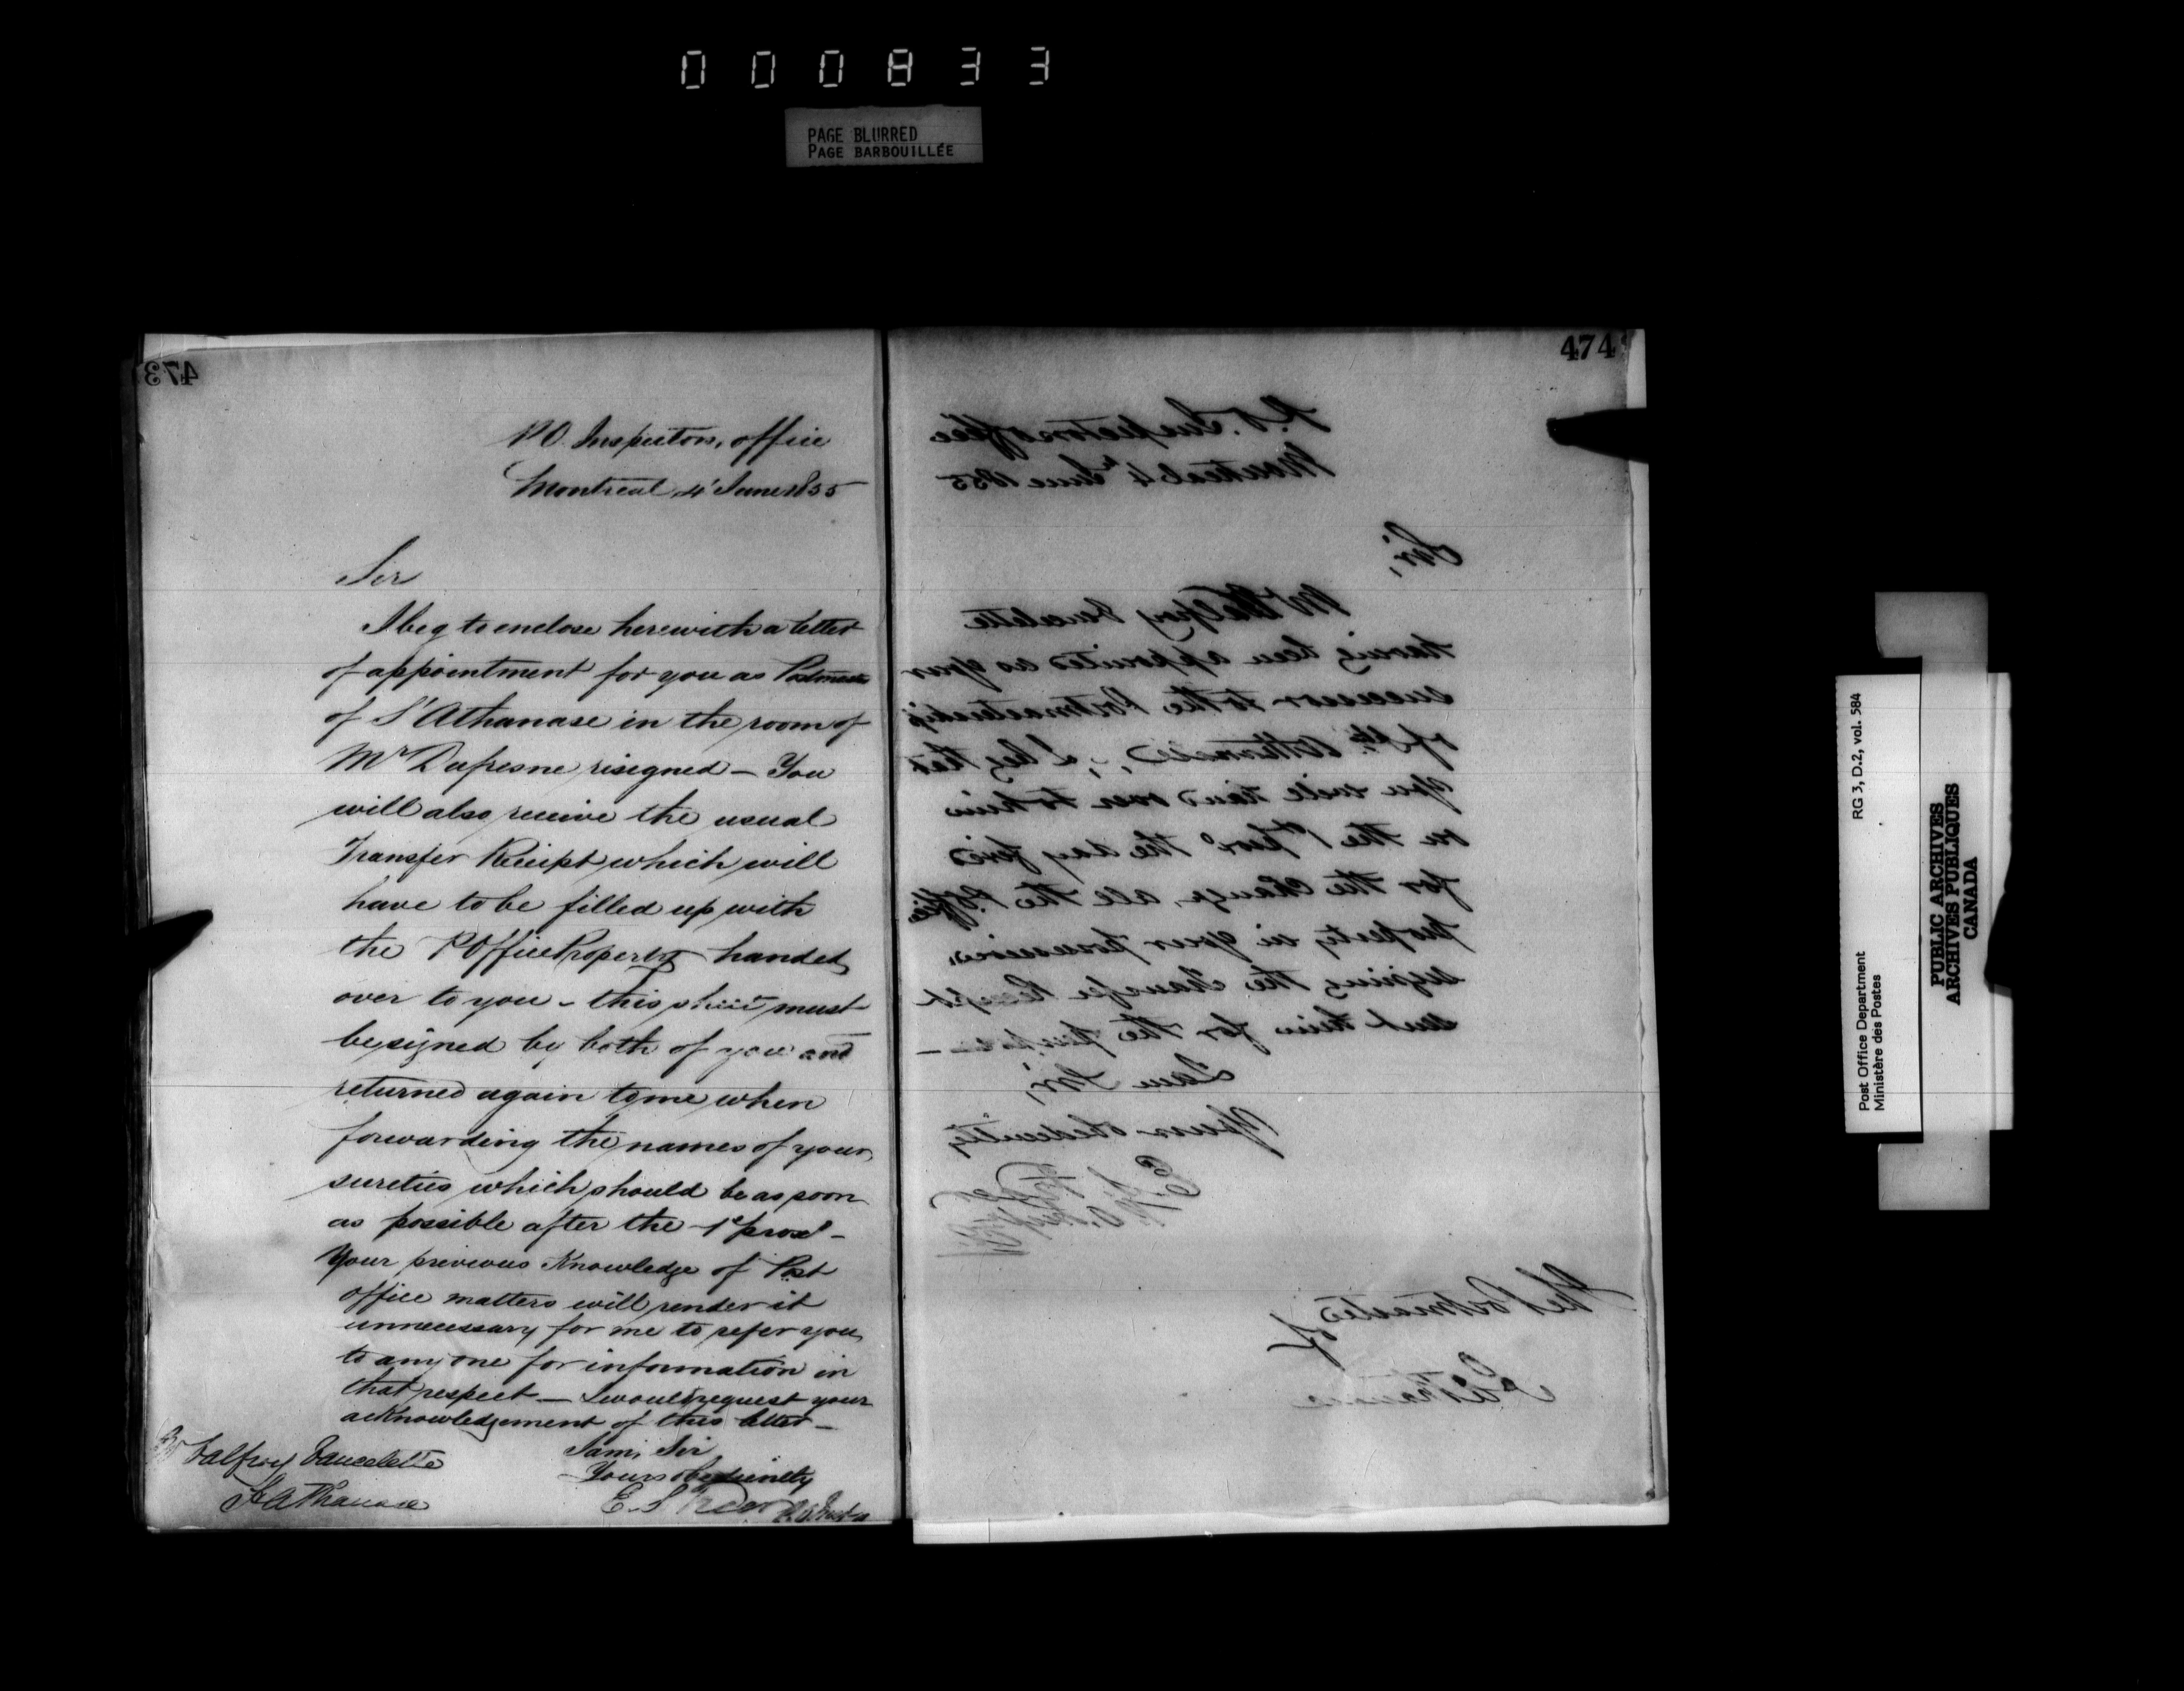 000833
PAGE BLURRED
PAGE BARBOUILLÉE
473
P.O. Inspectors, office
Montreal, 4' June 1855
Sir
I beg to enclose herewith a letter
of appointment for you as Postmaster
of S' Athanase in the room of
Mr Dufresne resigned – You
will also receive the usual
Transfer Receipt which will
have to be filled up with
the P Office Property handed
over to you – this must
be signed by both of you and
returned again to me when
forwarding the names of your
sureties which should be as soon
as possible after the 1st proxo –
Your previous Knowledge of Post
office matters will render it
unnecessary for me to refer you
to any one for information in
that respect – I would request your
acknowledgement of this letter –
I am, Sir
Yours obediently
E. S. Freer P.O. Inspr
Mr
St Athanase
474
P.O. Inspectors office
Montreal 4th June 1855
Sir,
Mr
having been appointed as your
successor to the Postmastership
of St. Athanase, I beg that
you will hand over to him
on the 1st proxo the day fixed
for the change, all the P. Office
property in your possession,
signing the Transfer Receipt
sent him for the purpose –
I am Sir,
Yours obediently
E. S. Freer
P. O. Inspr
The Postmaster
of
St Athanase
Post Office Department
Ministère des Postes
RG 3, D.2, vol. 584
PUBLIC ARCHIVES
ARCHIVES PUBLIQUES
CANADA